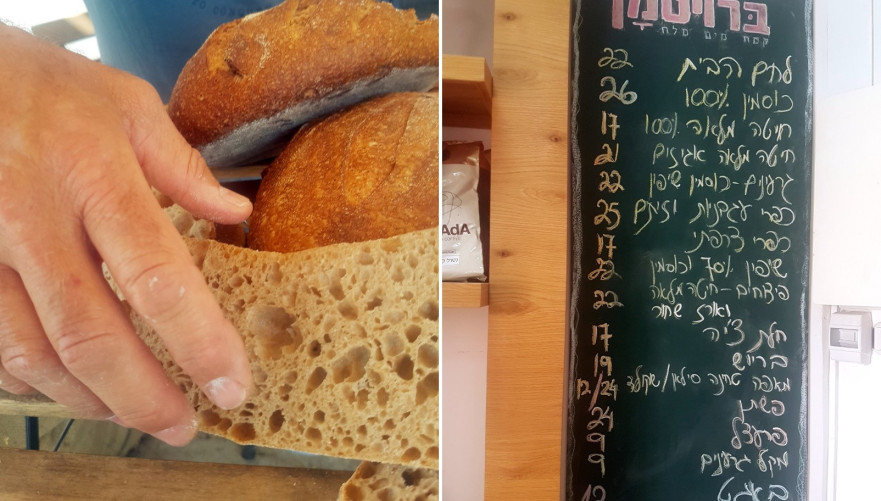 בּרויטמָן
קמח מים מלח
לחם הבית 22
כוסמין 100% 26
חיטה מלאה 100% 17
חיטה מלאה אגוזים 21
גרעינים-כוסמין שיפון 22
כפרי עגבניות וזיתים 25
כפרי צרפתי 17
שיפון 70% וכוסמין 22
פיצוחים-חיטה מלאה
ואורז שחור 22
חלת צ'יה 17
בריוש 19
מאפה טחינה סילאן/שוקולד 12/24
פשתן 24
פרעצל 9
מקל גרעינים 9
באגט 12
AdA